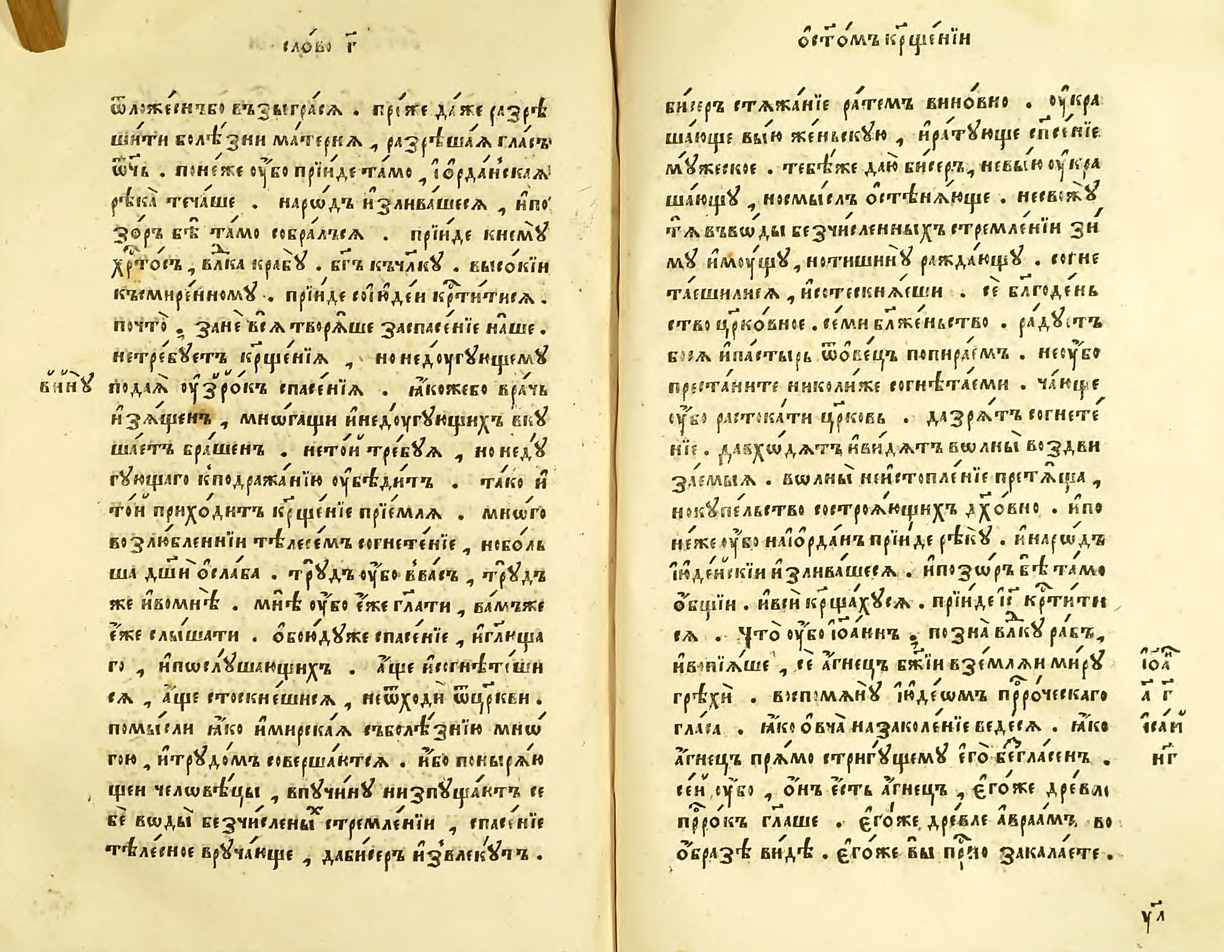 сло́во г҃
ѿложе́снъбо възыгра́сѧ . прі́же да́же разрѣ
ши́ти болѣ́зни ма́тернѧ , разрѣша́ѧ гла́съ
ѿ́чь . поне́же ᲂу҆́бо прїи́де та́мо , і҆ѡрда́н̾скаѧ
рѣка̀ теча́ше . наро́дъ и҆злива́шесѧ , и҆по
зо́ръ бѣ̀ та́мо собра́лъсѧ . прїи́де кнемꙋ̀
хрⷭ҇то́съ , влⷣка крабꙋ̀ . бг҃ъ къчл҃кꙋ . высо́кїи
късмире́нномꙋ . прїи́де соі҆ꙋде́и крⷭ҇ти́тисѧ .
почто̀ , занѐ всѧ̀ творѧ́ше заспасе́нїе на́ше .
нетре́бꙋетъ крⷳ҇ще́нїѧ , нонедоугꙋ́ющемꙋ
винꙋ̀
подаѧ̀ ᲂу҆зро́къ спасе́нїѧ . ꙗ҆́кожебо вра́чь
и҆зѧ́щенъ , мно́гащи и҆недоугꙋ́ющихъ вкꙋ
ша́етъ бра́шенъ . нето́и тре́бꙋѧ , нонедꙋ́
гꙋющаго кподража́нїю ᲂу҆бѣди́тъ . та́ко и҆
то́и прихо́дитъ крⷳ҇ще́нїе прїе́млѧ . мно́го
возлю́бленнїи тѣлесе́мъ согнете́нїе , нобо́ль
ша дш҃и ѻ҆сла́ба . трꙋ́дъ ᲂу҆́бо вва́съ , трꙋ́дъ
же и҆вомнѣ̀ . мнѣ̀ ᲂу҆́бо є҆́же гл҃ати , ва́мъже
є҆́же слы́шати . ѻ҆бои́дꙋже спасе́нїе , и҆гл҃юща
го , и҆пѡслꙋ́шающихъ . а҆́ще и҆согнѣте́ши
сѧ , а҆́ще стоскне́шисѧ , неѿходи̾ ѿцр҃кви .
помы́сли ꙗ҆́ко и҆мирска́ѧ съболѣ́знїю мно́
гою , и҆трꙋдо́мъ соверша́ютсѧ . и҆́бо понырѧ́ю
щеи человѣ́цы , впꙋчи́нꙋ низпꙋща́ютъ се
бѐ во́ды безчи́слены̾хъ стремле́нїи , спасе́нїе
тѣле́сное врꙋча́юще , даби́серъ и҆звлекꙋ́тъ .
ѻ҆ст҃о́мъ крⷳ҇ще́нїи
би́серъ стѧжа́нїе ра́темъ вино́вно . ᲂу҆кра
ша́юще вы́ю же́ньскꙋю , и҆ра́тꙋюще спⷭ҇е́нїе
мꙋ́жеское . тебѣ́же даю̀ би́серъ , невы́ю ᲂу҆кра
ша́ющꙋ , носмы́слъ ѻ҆стѣнѧ́юще . несвожꙋ̀
тѧ̀ въво́ды безчи́сленныхъ стремле́нїи зи
мꙋ̀ и҆моущꙋ , нотишинꙋ̀ ражда́ющꙋ . согне
та́ешилисѧ , и҆сотескнѧ́еши . сѐ бл҃годе́нь
ство црⷪ҇ко́вное . се́ми бл҃же́ньство . ра́дꙋетъ
боѧ и҆па́стырь ѿо́вецъ попира́емъ . неᲂу҆́бо
преста́ните николи́же согнѣта́еми . ча́юще
ᲂу҆́бо растока́ти цр҃ковь . дазрѧ́тъ согнете́
нїе . давхо́дѧтъ и҆ви́дѧтъ во́лны̀ воздви
за́емыѧ . во́лны̀ неи҆стопле́нїе претѧ́ща ,
нокꙋпе́льство состро́ѧющихъ дх҃о́вно . и҆по
не́же ᲂу҆́бо наі҆ѡрда́нъ прїи́де рѣ́кꙋ . и҆наро́дъ
і҆ꙋде́искїи и҆злива́шесѧ . и҆позо́ръ бѣ̀ та́мо
ѻ҆́бщїи . и҆всѝ крⷳ҇ща́хꙋсѧ . прїи́де і҆с҃ крⷭ҇ти́ти
сѧ . Что̀ ᲂу҆́бо і҆ѡа́ннъ , позна̀ влⷣкꙋ ра́бъ ,
и҆вопїѧ́ше , сѐ а҆́гнецъ бж҃їи взе́млѧи ми́рꙋ
і҆ѡа҃
грѣхѝ . воспомѧнꙋ̀ і҆ꙋде́ѡмъ прⷪ҇ро́ческаго
а҃ г҃
гла́са . ꙗ҆́ко ѻ҆вча̀ назаколе́нїе веде́сѧ . ꙗ҆́ко
і҆са́и
а҆́гнецъ прѧ́мо стригꙋ́щемꙋ є҆го̀ безгла́сенъ .
нг҃
се́и ᲂу҆́бо , ѻ҆́нъ є҆́сть а҆́гнецъ , є҆го́же дре́вле
прⷪ҇ро́къ гл҃аше . є҆го́же дре́вле а҆враа́мъ во
ѻ҆́бразѣ ви́дѣ . є҆го́же вы̀ прⷭ҇но закала́ете .
ч҃л